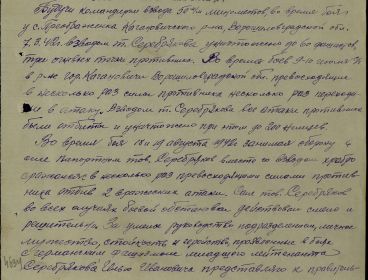 Будучи командиром взвода 50 м/м минометов, во время боя
у с. Преображенка Кагановичского р-на, Ворошиловградской обл.
7.3.42г. взводом т. Серебрякова уничтожено до 60 фашистов,
три огневых точки противника. Во время боев 9-10 июля 42г.
в р-не гор. Кагановичи Ворошиловградской обл. превосходящие
в несколько раз силы противника несколько раз переходи-
ли в атаку. Взводом т. Серебрякова все атаки противника
были отбиты и уничтожено при этом до 200 немцев.
Во время боя 18 и 19 августа 1942г. занимая оборону у
тов. Серебряков вместе со взводом храбро
сражался с в несколько раз превосходящими силами против-
ника отбив 2 вражеских атаки. Сам тов. Серебряков
во всех случаях боевой обстановки действовал смело и
решительно. За умелое руководство подразделением, личное
мужество, стойкость и геройство, проявленные в боях
с германским фашизмом младшего лейтенанта
Серебрякова Илью Ивановича представляю к правитель-